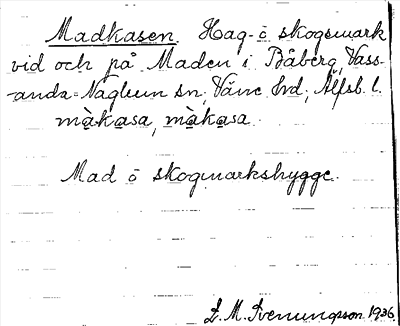 Madkasen. Hag- o skogsmark
vid och på Maden i Båberg, Vass-
anda-Naglum sn, Väne hd, Älfsb. l.
màkasa, màkasa.
Mad o skogmarkshygge.
L. M. Svenungsson 1936.